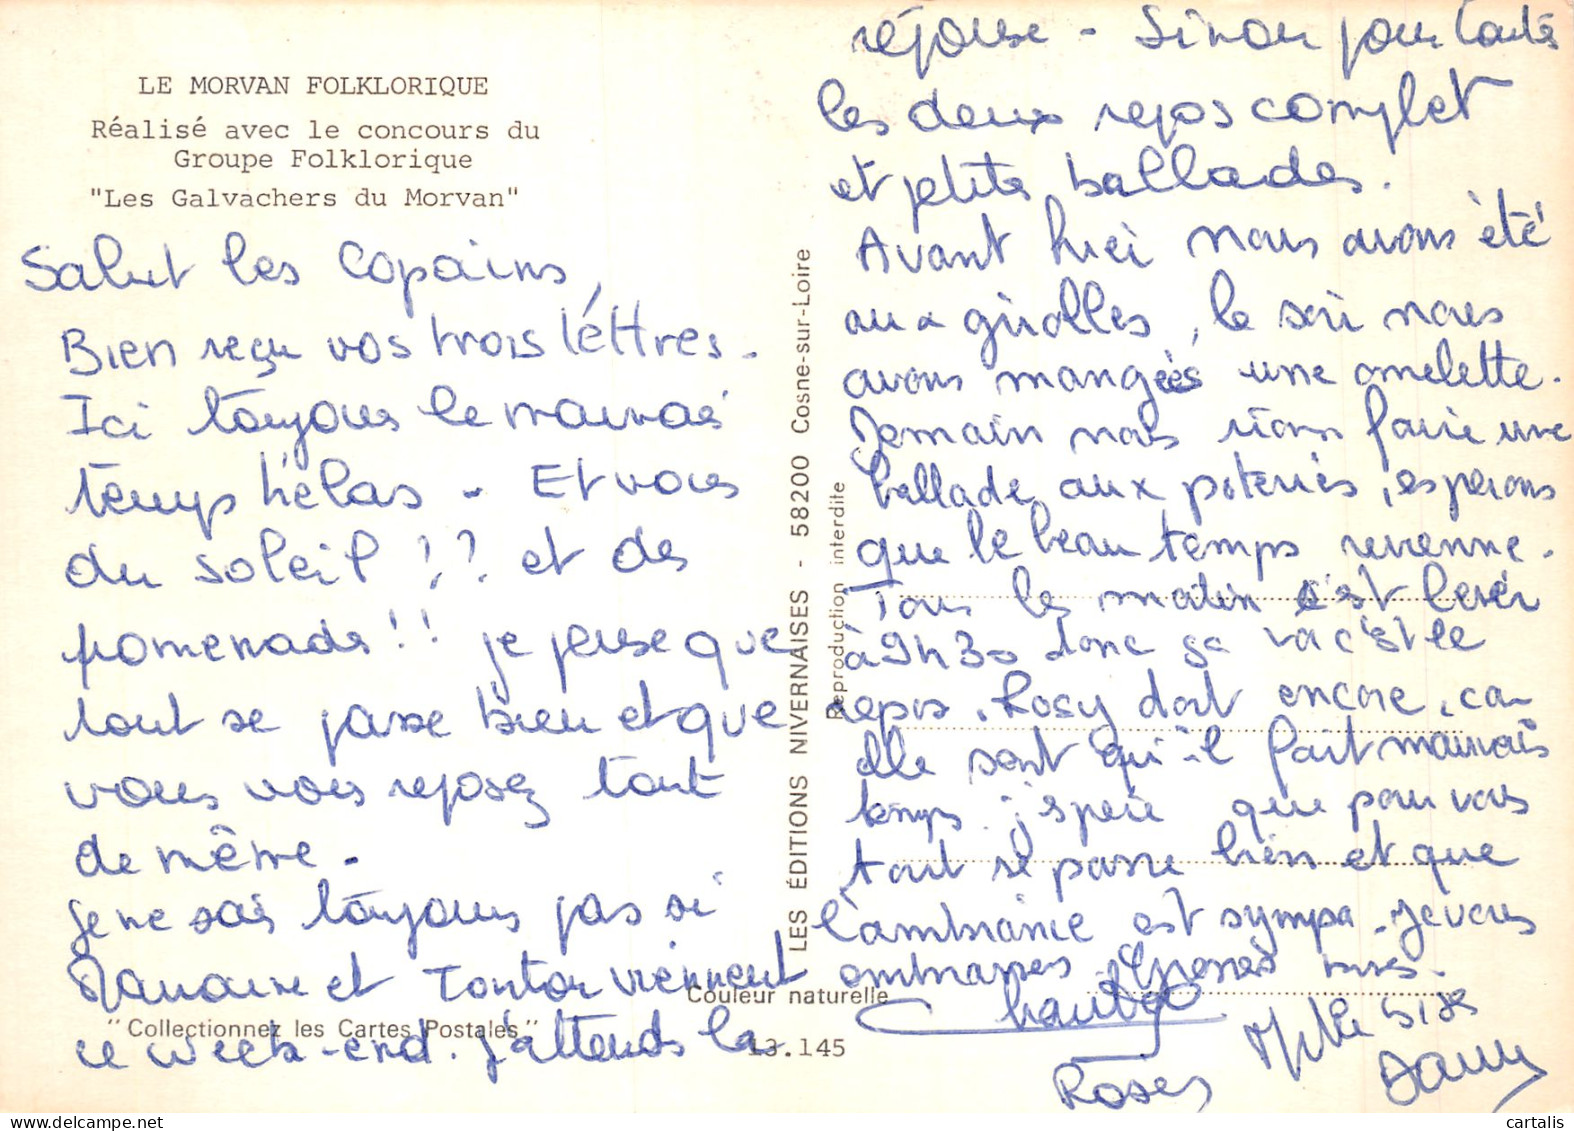 LE MORVAN FOLKLORIQUE
Réalisé avec le concours du
Groupe Folklorique
"Les Galvachers du Morvan"
Salut les copains,
Bien reçu vos trois léttres.
Ici toujours le mauvais
temps hélas - Et vous
du soleil ?? et des
promenads!! je pense que
tout se passe bien et que
vous vous reposez tout
de même -
je ne sais toujours pas si
et Tonton viennent
ce week-end. j'attends la
"Collectionnez les Cartes Postales"
Couleur naturelle
13.145
LES ÉDITIONS NIVERNAISES - 58200 Cosne-sur-Loire
Reproduction interdite
réponse - Sinon pour toutes
les deux repos complet
et petites ballades.
Avant hier nous avons été
aux girolles, le soir nous
avons mangées une omelette.
Demain nous irons faire une
ballade aux poteries, esperons
que le beau temps revienne.
Tous les matin c'est lever
à 9h30 donc sa va c'est le
repos. Rosy dort encore, car
elle sent qu'il fait mauvais
temps. j'espere que pour vous
tout se passe bien et que
l'ambiance est sympa. Je vous
embrasses. Grosses bises.
Mille bises
Roses
Dany